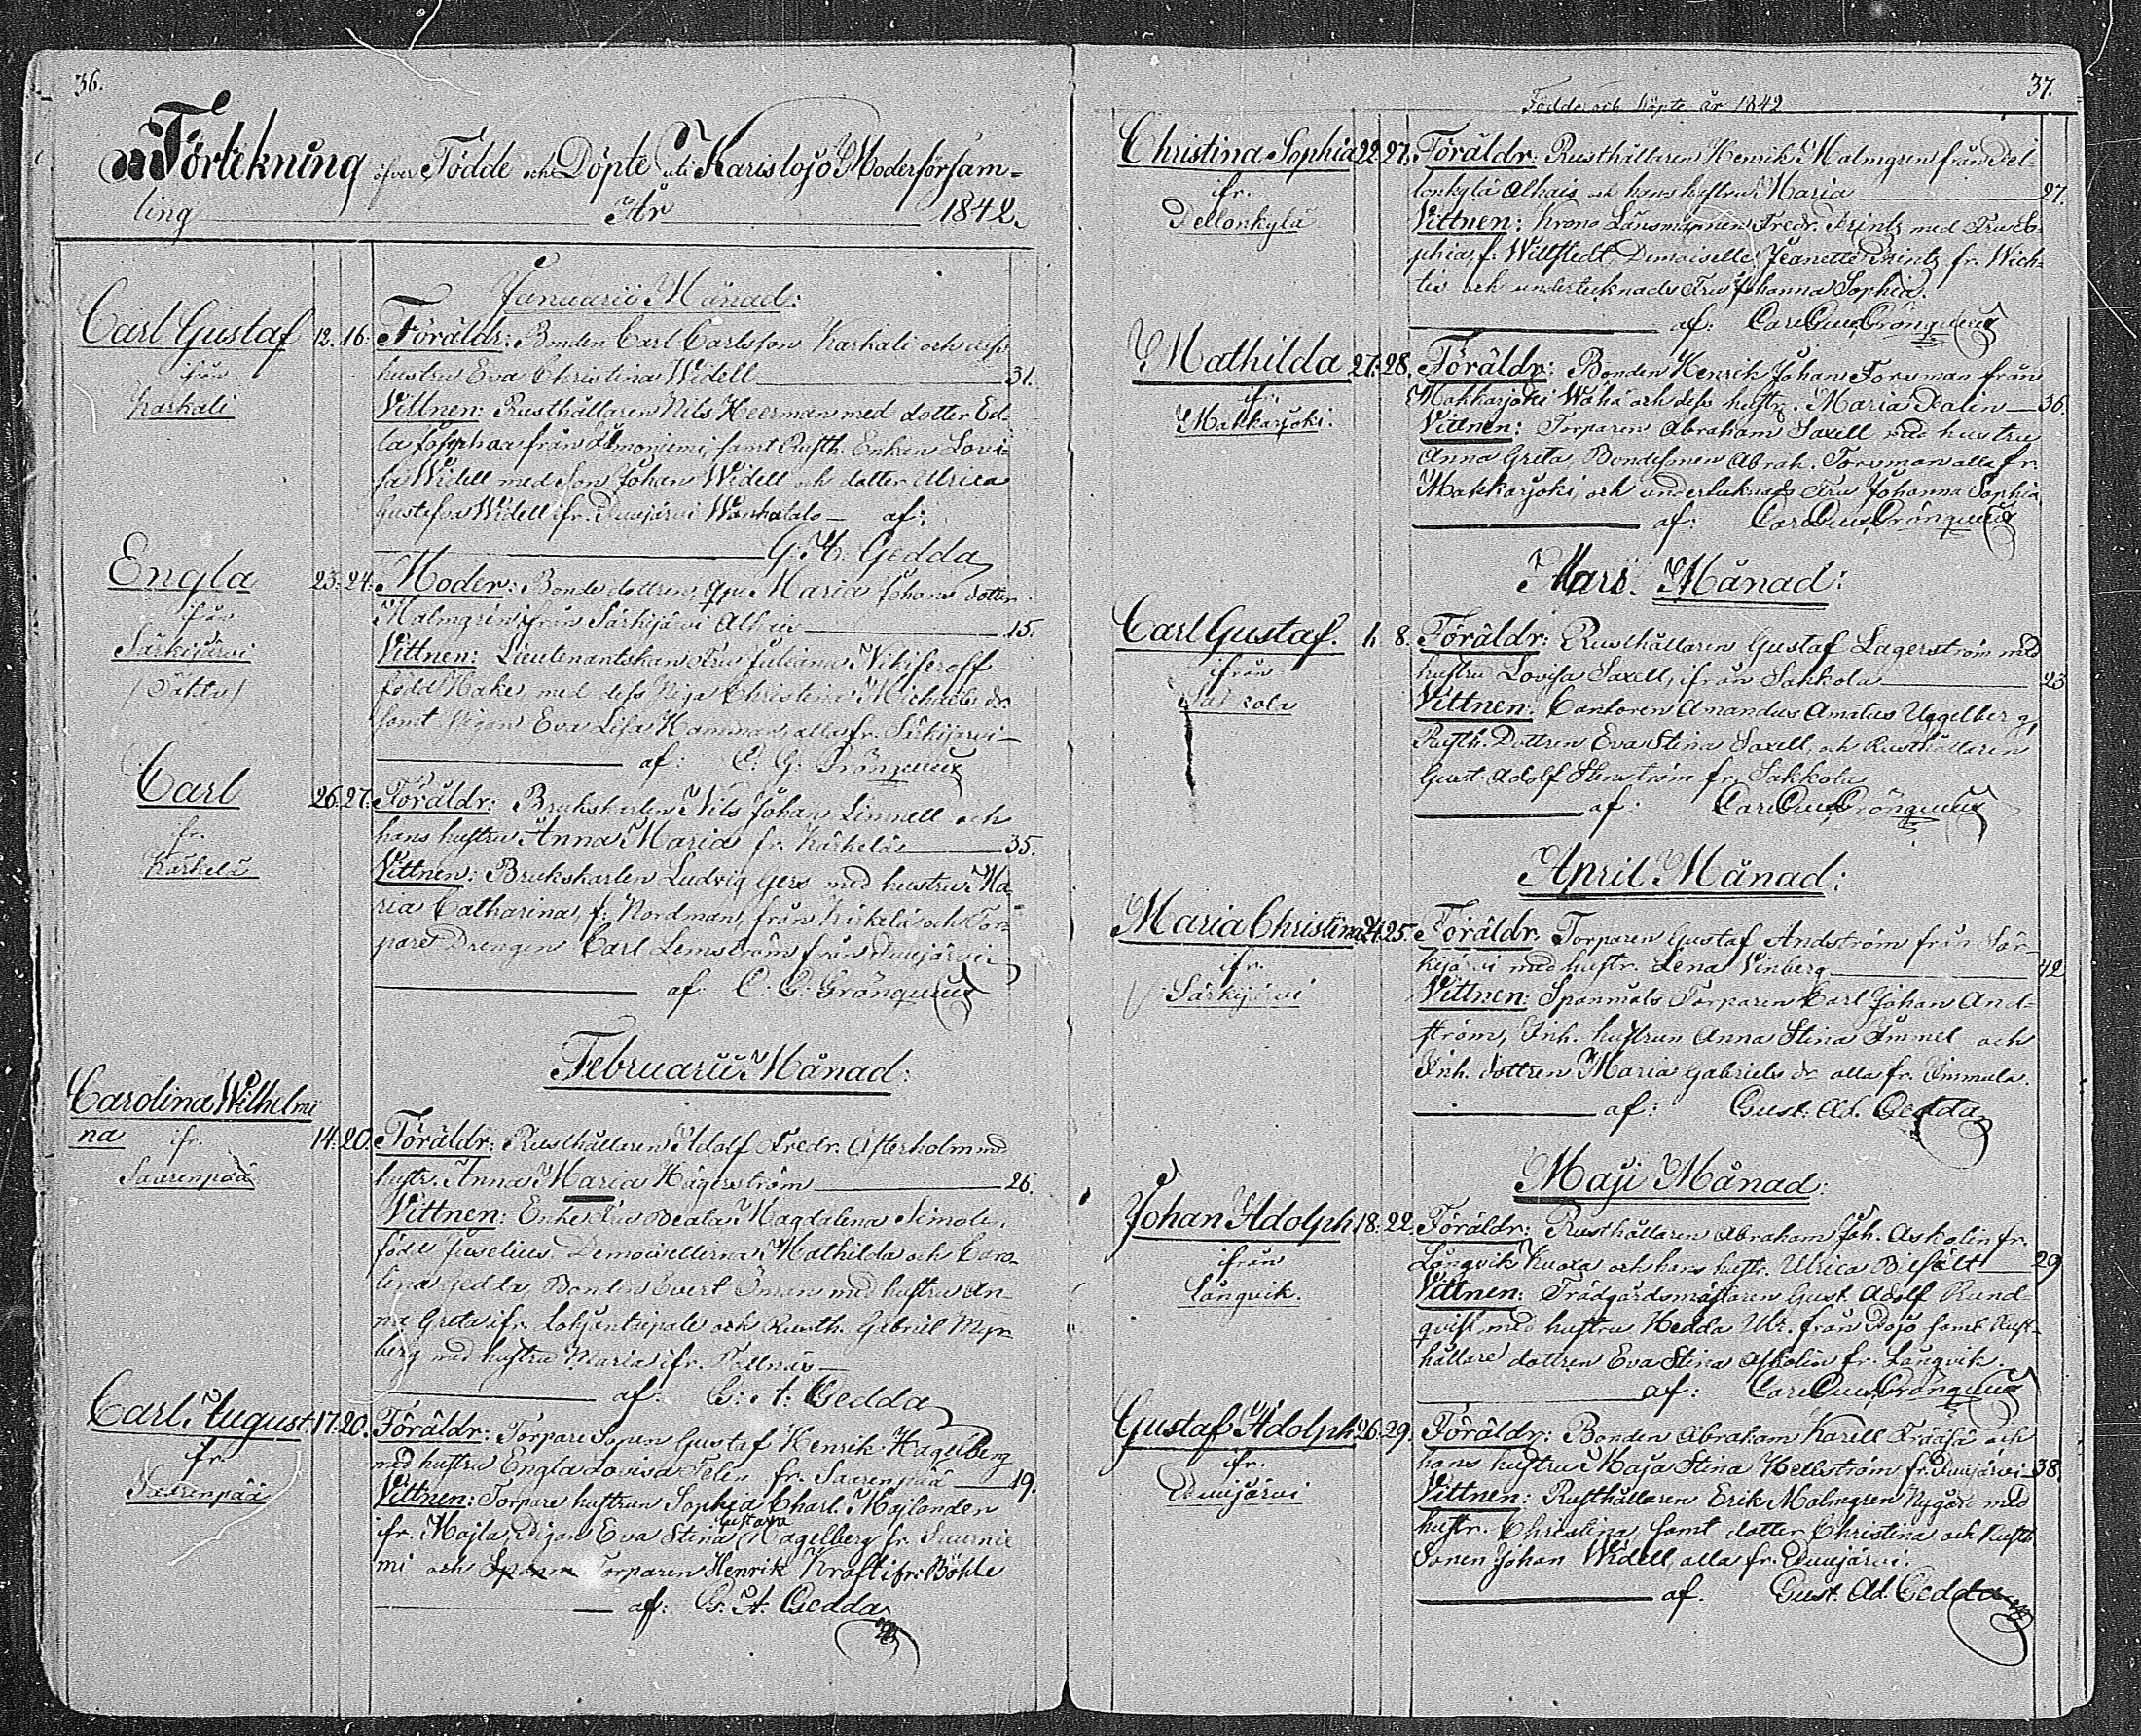 36.
Förtekning öfver Födde och Döpte uti Karislojo Moderförsam-
ling År 1842.
Januarii Månad:
Carl Gustaf 12. 16. Föräldr: Bonden Carl Carlsson Karkali och dess
ifrån
Karkali
hustru Eva Christina Widell 31.
Vittnen: Rusthållaren Nils Heerman med dotter Ed-
la från Ilmoniemi, samt Rusth. Enkan Lovi-
sa Widell med Son Johan Widell och dotter Ulrica
Gustafva Widell ifr. Suurjärvi Wanhatalo af:
G. A. Gedda
Engla 23. 24. Moder: Bondedottren, Maria Johans dotter
ifrån
Särkijärvi
Malmgren ifrån Särkijärvi Alhais 15.
Vittnen: Lieutenantskan Fru Juliana Nikiferoff
född Hake, med dess Piga Christina Michaels dr
samt Pigan Eva Lisa Hamman, alla fr. Särkijärvi
af: C. G. Grönqvist
Carl 26. 27. Föräldr: Brukskarlen Nils Johan Linnell och
fr.
Kärkelä
hans hustru Anna Maria fr. Kärkelä 35.
Vittnen: Brukskarlen Ludvig Gers med hustru Ma-
ria Catharina, f: Nordman, från Kärkelä och Tor-
pare Drengen Carl Lemström från Suurjärvi
af: C. G. Grönqvist
Februarii Månad:
Carolina Wilhelmi
na ifr. 14. 20. Föräldr: Rusthållaren Adolf Fredr. Osterholm med
Saarenpää
hustr. Anna Maria Hägerström 26.
Vittnen: Enke Fru Beata Magdalena Simolin,
född Juselius, Demoisellerna Mathilda och Caro-
lina Gedda, Bonden Evert Öman med hustru An-
na Greta ifr. Lohjantaipale och Rusth. Gabriel Myr-
berg med hustru Maria ifr. Tallnäs
af: G. A. Gedda
Carl August 17. 20. Föräldr: Torpare Sonen Gustaf Henrik Hagelberg
fr.
Saarenpää
med hustru Engla Lovisa Telen fr. Saarenpää 19.
Vittnen: Torpare hustrun Sophia Charl. Majlander
ifr. Majla, Pigan Eva Stina Gustava Hagelberg fr. Suurnie
mi och Torparen Henrik Kraft ifr: Böhle
af: G. A. Gedda
37.
Födde och Döpte år 1842
Christina Sophia 22. 27. Föräldr: Rusthållaren Henrik Malmgren från Del-
ifr.
Dellonkylä
lonkylä Alhais och hans hustru Maria 27.
Vittnen: Krono Länsmannen Fredr. Printz med Fru So-
phia, f. Willstedt, Demoiselle Jeanette Printz fr. Wich-
tis och undertecknads Fru Johanna Sophia.
af: Carl Gust. Grönqvist
Mathilda 27. 28. Föräldr: Bonden Henrik Johan Forsman från
ifr.
Makkarjoki.
Makkarjoki Wähä och dess hustr. Maria Dalin 36.
Vittnen: Torparen Abraham Saxell med hustru
Anna Greta, Bondesonen Abrah. Forsman alla fr.
Makkarjoki och undertecknads Fru Johanna Sophia
af: Carl Gust. Grönqvist
Mars Månad:
Carl Gustaf. 1. 8. Föräldr: Rusthållaren Gustaf Lagerström med
ifrån
Sakkola
hustru Lovisa Saxell, ifrån Sakkola 23
Vittnen: Cantoren Amandus Amatus Uggelberg,
Rusth. Dottren Eva Stina Saxell, och Rusthållaren
Gust. Adolf Stenström fr. Sakkola
af: Carl Gust. Grönqvist
April Månad:
Maria Christina 24. 25. Föräldr. Torparen Gustaf Andström från Sär-
ifr.
Särkijärvi
kijärvi med hustr. Lena Vinberg 42
Vittnen: Spanmåls Torparen Carl Johan And-
ström, Inh. hustrun Anna Stina Immel och
Inh. dottren Maria Gabriels dr alla fr. Immula.
af: Gust. Ad. Gedda
Maji Månad:
Johan Adolph 18. 22. Föräldr: Rusthållaren Abraham Joh. Askolin fr.
ifrån
Långvik.
Långvik Kuoxa och hans hustr. Ulrica Bifält 29
Vittnen: Trädgårdsmästaren Gust. Adolf Rund-
qvist, med hustru Hedda Ulr. från Dojo samt Rust-
hållare dottren Eva Stina Askolin fr. Långvik.
af: Carl Gust. Grönqvist
Gustaf Adolph 26. 29. Föräldr: Bonden Abraham Karell och
ifr.
Suurjärvi
hans hustru Maja Stina Hellström fr. Suurjärvi 38.
Vittnen: Rusthållaren Erik Malmgren Nygård med
hustr. Christina, samt dotter Christina och Rusth.
Sonen Johan Widell, alla fr. Suurjärvi.
af. Gust. Ad. Gedda